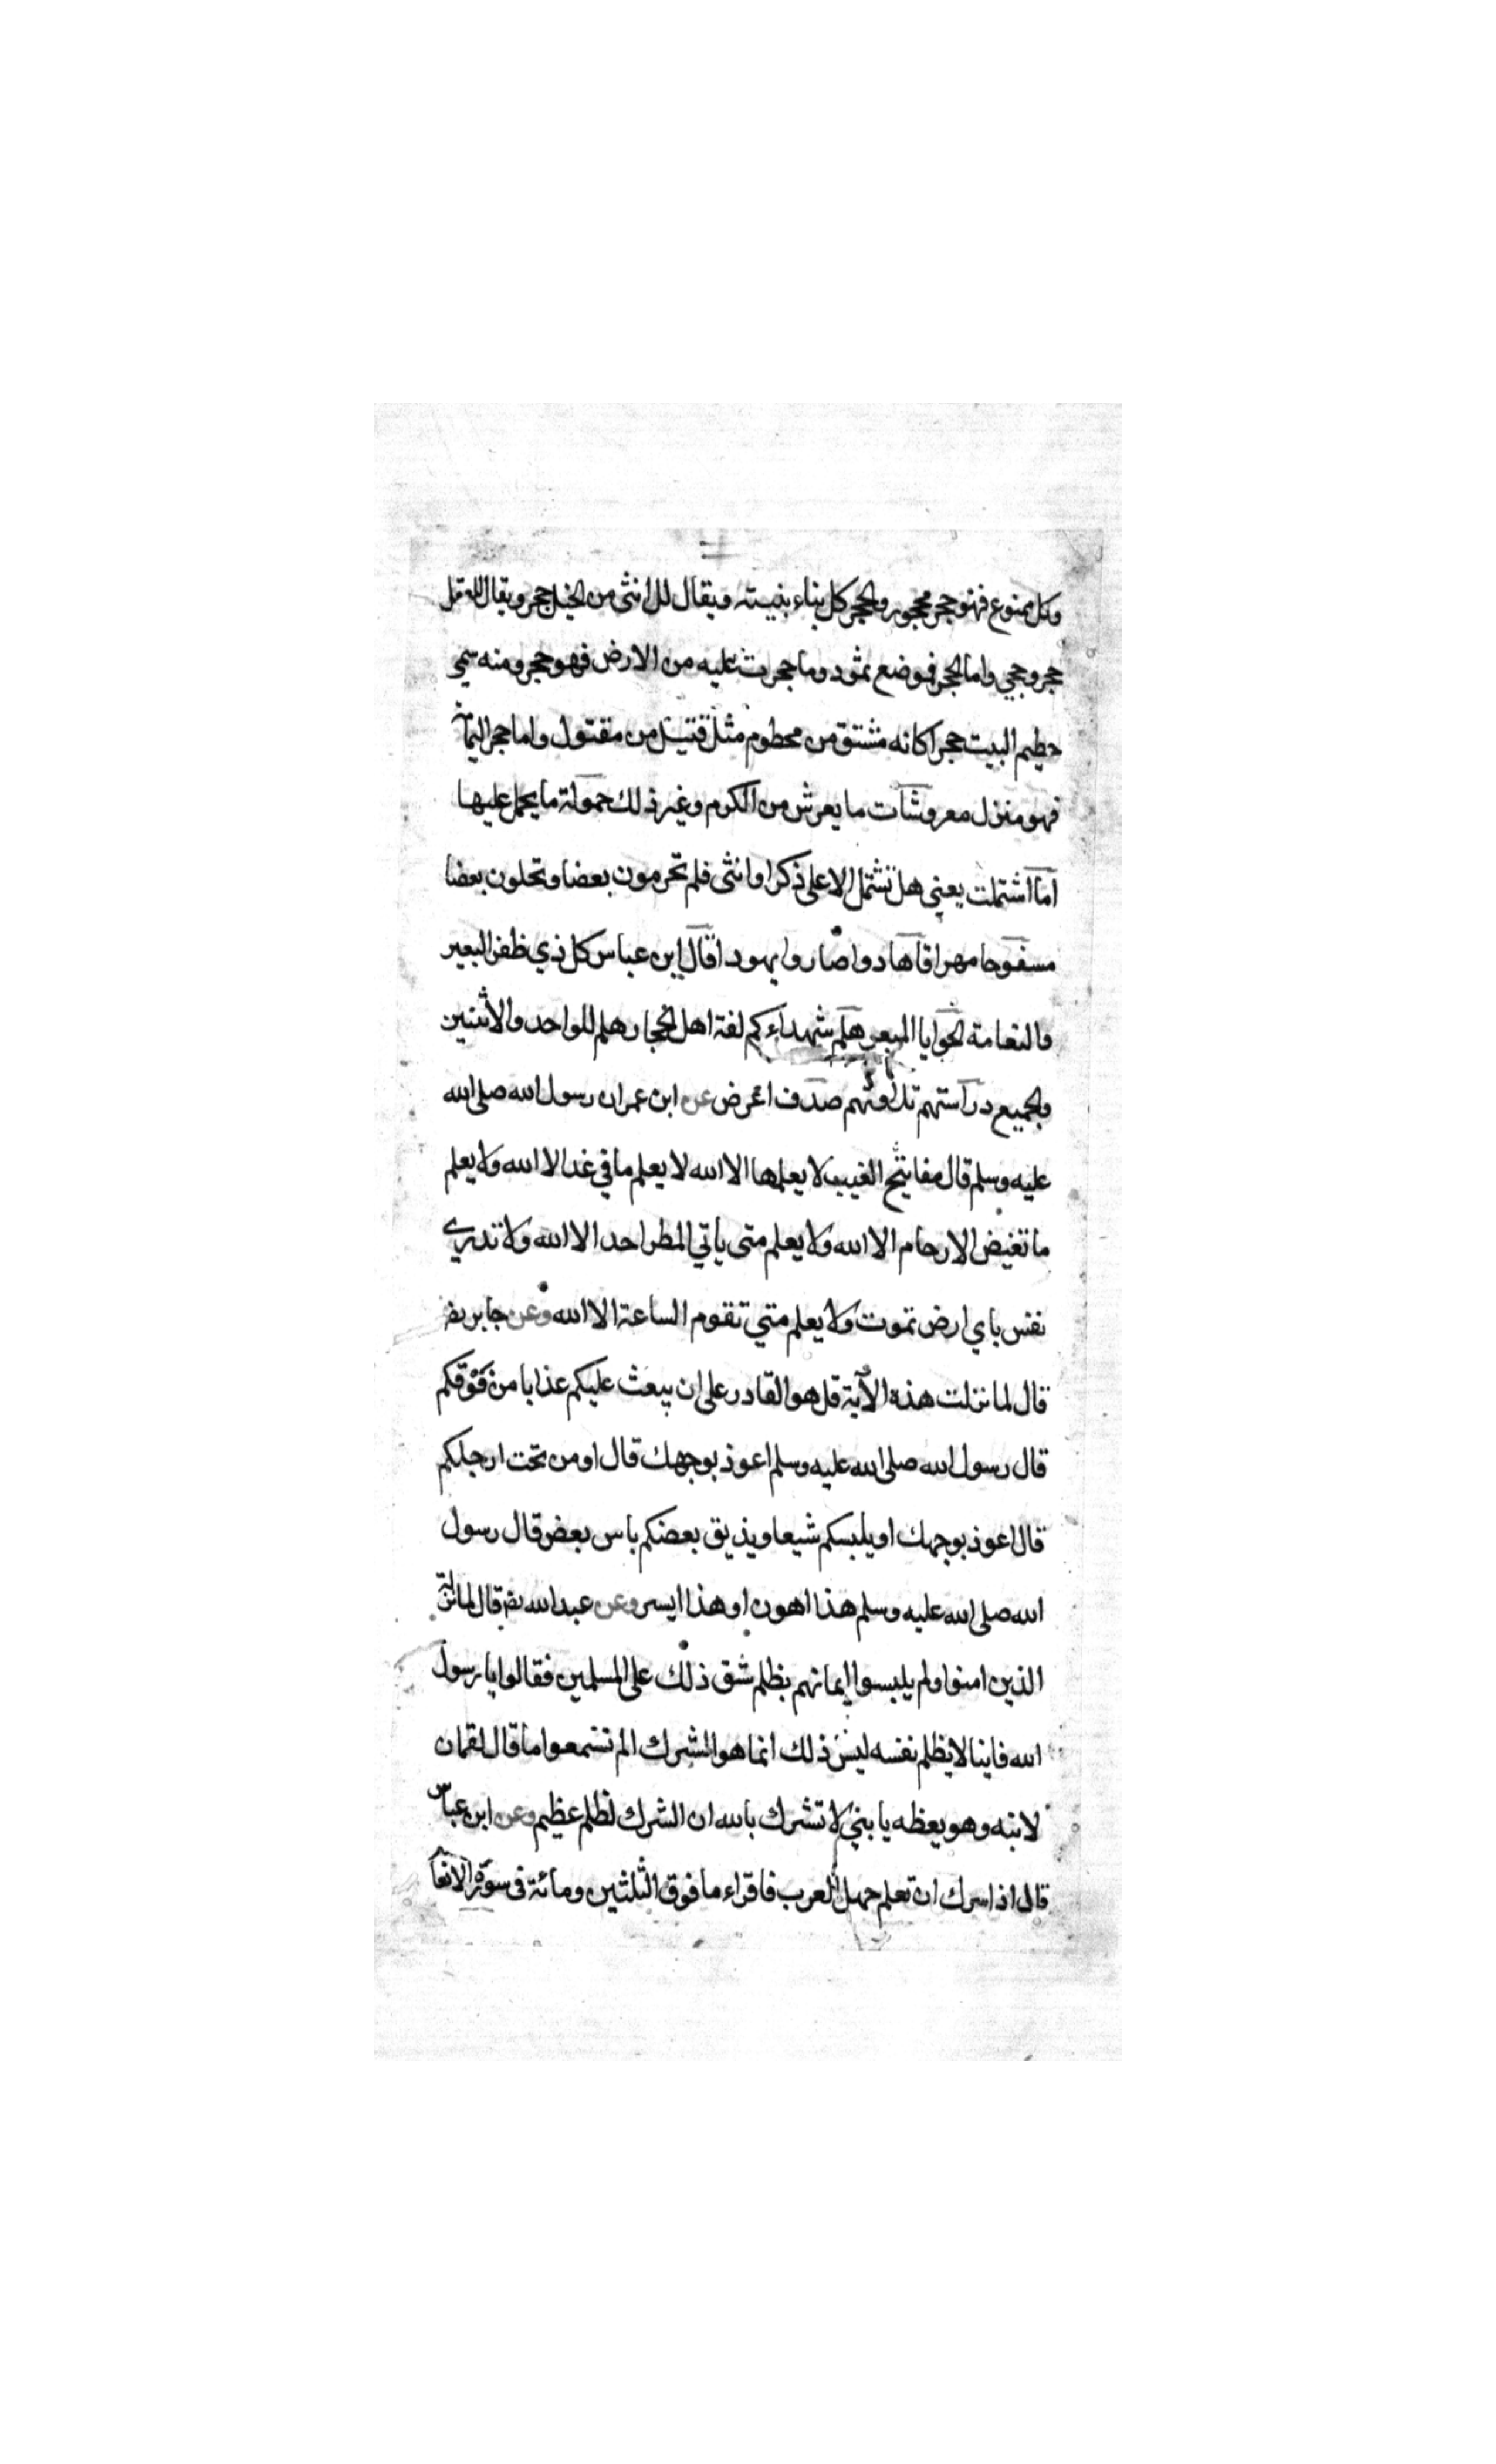 وكل ممنوع فهو حجر محجور والحجر كل بناء بنيته ويقال للانثى من الخيل حجر ويقال للعقل
حجر وحجي واما الحجر فموضع ثمود وما حجرت عليه من الارض فهو حجر ومنه سمي
حطيم البيت حجرا كانه مشتق من محطوم مثل قتيل من مقتول واما حجر اليمامة
فهو منزل معروشات ما يعرش من الكرم وغير ذلك حمولة ما يحمل عليها
اما اشتملت يعني هل تشتمل الا على ذكر او انثى فلم تحرمون بعضا وتحلون بعضا
مسفوحا مهراقا هادوا صاروا يهودا قال ابن عباس كل ذي ظفر البعير
والنعامة الحوايا المبعر هلم شهداءكم لغة اهل الحجاز هلم للواحد والاثنين
والجميع دراستهم تلاوتهم صدف اعرض عن ابن عمر ان رسول الله صلى الله
عليه وسلم قال مفاتيح الغيب لا يعلمها الا الله لا يعلم ما في غد الا الله ولا يعلم
ما تغيض الارحام الا الله ولا يعلم متى ياتي المطر احد الا الله ولا تدري
نفس باي ارض تموت ولا يعلم متي تقوم الساعة الا الله وعن جابر رضـ
قال لما نزلت هذه الآية قل هو القادر على ان يبعث عليكم عذابا من فوقكم
قال رسول الله صلى الله عليه وسلم اعوذ بوجهك قال او من تحت ارجلكم
قال اعوذ بوجهك او يلبسكم شيعا ويذيق بعضكم باس بعض قال رسول
الله صلى الله عليه وسلم هذا اهون او هذا ايسر وعن عبد الله رضـ قال لما نزلت
الذين امنوا ولم يلبسوا ايمانهم بظلم شق ذلك على المسلمين فقالوا يا رسول
الله فاينا لا يظلم نفسه ليس ذلك انما هو الشرك الم تسمعوا ما قال لقمان
لابنه وهو يعظه يا بني لا تشرك بالله ان الشرك لظلم عظيم وعن ابن عباس
قال اذا سرك ان تعلم جهل العرب فاقراء ما فوق الثلثين ومائة في سورة الانعا